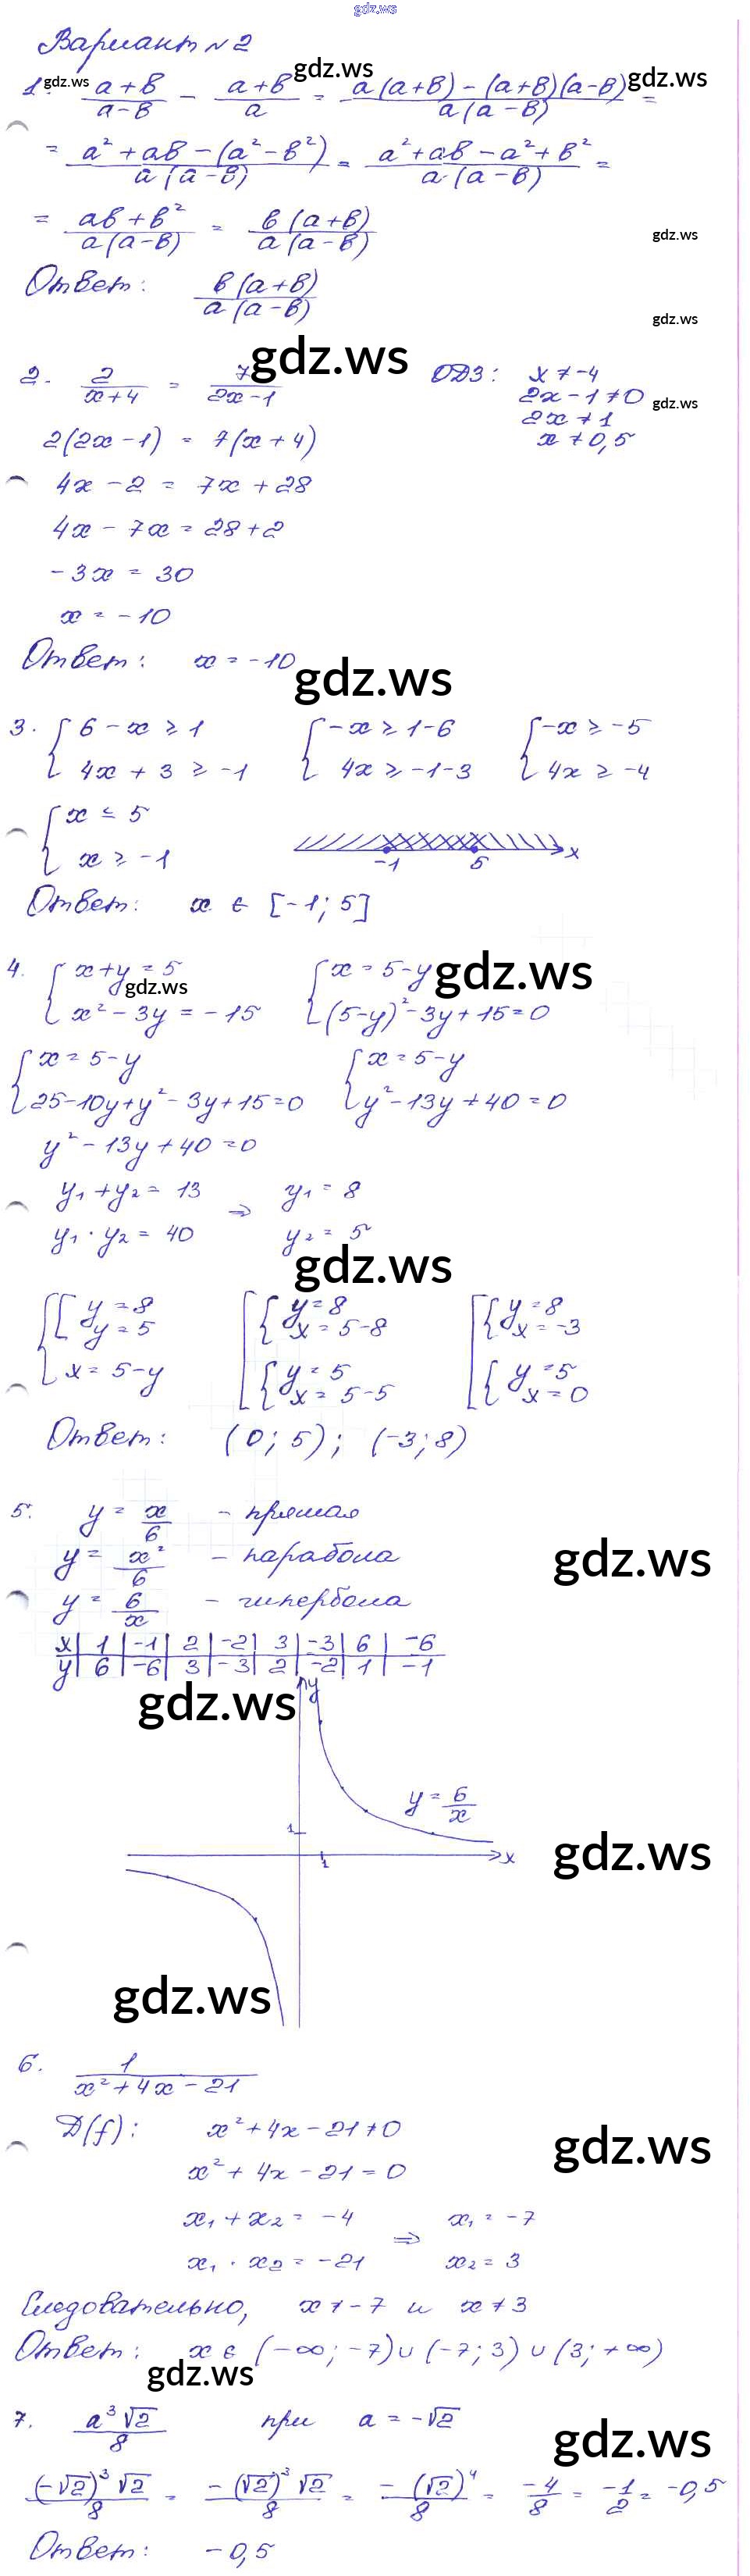 gdz.ws
Вариант №2
1. (a+b)/(a-b) - (a+b)/a = (a(a+b) - (a+b)(a-b))/(a(a-b)) =
gdz.ws gdz.ws gdz.ws
= (a² + ab - (a² - b²))/(a(a-b)) = (a² + ab - a² + b²)/(a·(a-b)) =
= (ab + b²)/(a(a-b)) = (b(a+b))/(a(a-b))
gdz.ws
Ответ: (b(a+b))/(a(a-b))
gdz.ws
gdz.ws
2. 2/(x+4) = 7/(2x-1) ОДЗ: x ≠ -4
2x - 1 ≠ 0
gdz.ws
2x ≠ 1
2(2x-1) = 7(x+4) x ≠ 0,5
4x - 2 = 7x + 28
4x - 7x = 28 + 2
-3x = 30
x = -10
Ответ: x = -10
gdz.ws
3. { 6 - x ≥ 1 { -x ≥ 1-6 { -x ≥ -5
4x + 3 ≥ -1 4x ≥ -1-3 4x ≥ -4
{ x ≤ 5
x ≥ -1
-1 5 x
Ответ: x ∈ [-1; 5]
4. { x+y = 5 { x = 5-y
gdz.ws gdz.ws
x² - 3y = -15 (5-y)² - 3y + 15 = 0
{ x = 5-y { x = 5-y
25-10y+y² - 3y+15=0 y² - 13y + 40 = 0
y² - 13y + 40 = 0
y₁ + y₂ = 13 ⇒ y₁ = 8
y₁ · y₂ = 40 y₂ = 5
gdz.ws
{ [ y = 8 [ { y = 8 [ { y = 8
y = 5 x = 5-8 x = -3
x = 5-y { y = 5 { y = 5
x = 5-5 x = 0
Ответ: (0; 5); (-3; 8)
5. y = x/6 - прямая
y = x²/6 - парабола
gdz.ws
y = 6/x - гипербола
x | 1 | -1 | 2 | -2 | 3 | -3 | 6 | -6
y | 6 | -6 | 3 | -3 | 2 | -2 | 1 | -1
gdz.ws
y
y = 6/x
1
1 x
gdz.ws
gdz.ws
6. 1/(x² + 4x - 21)
D(f): x² + 4x - 21 ≠ 0
gdz.ws
x² + 4x - 21 = 0
x₁ + x₂ = -4 ⇒ x₁ = -7
x₁ · x₂ = -21 x₂ = 3
Следовательно, x ≠ -7 и x ≠ 3
Ответ: x ∈ (-∞; -7) ∪ (-7; 3) ∪ (3; +∞)
gdz.ws
7. a³√2/8 при a = -√2
gdz.ws
((-√2)³√2)/8 = (-(√2)³√2)/8 = (-(√2)⁴)/8 = -4/8 = -1/2 = -0,5
Ответ: -0,5